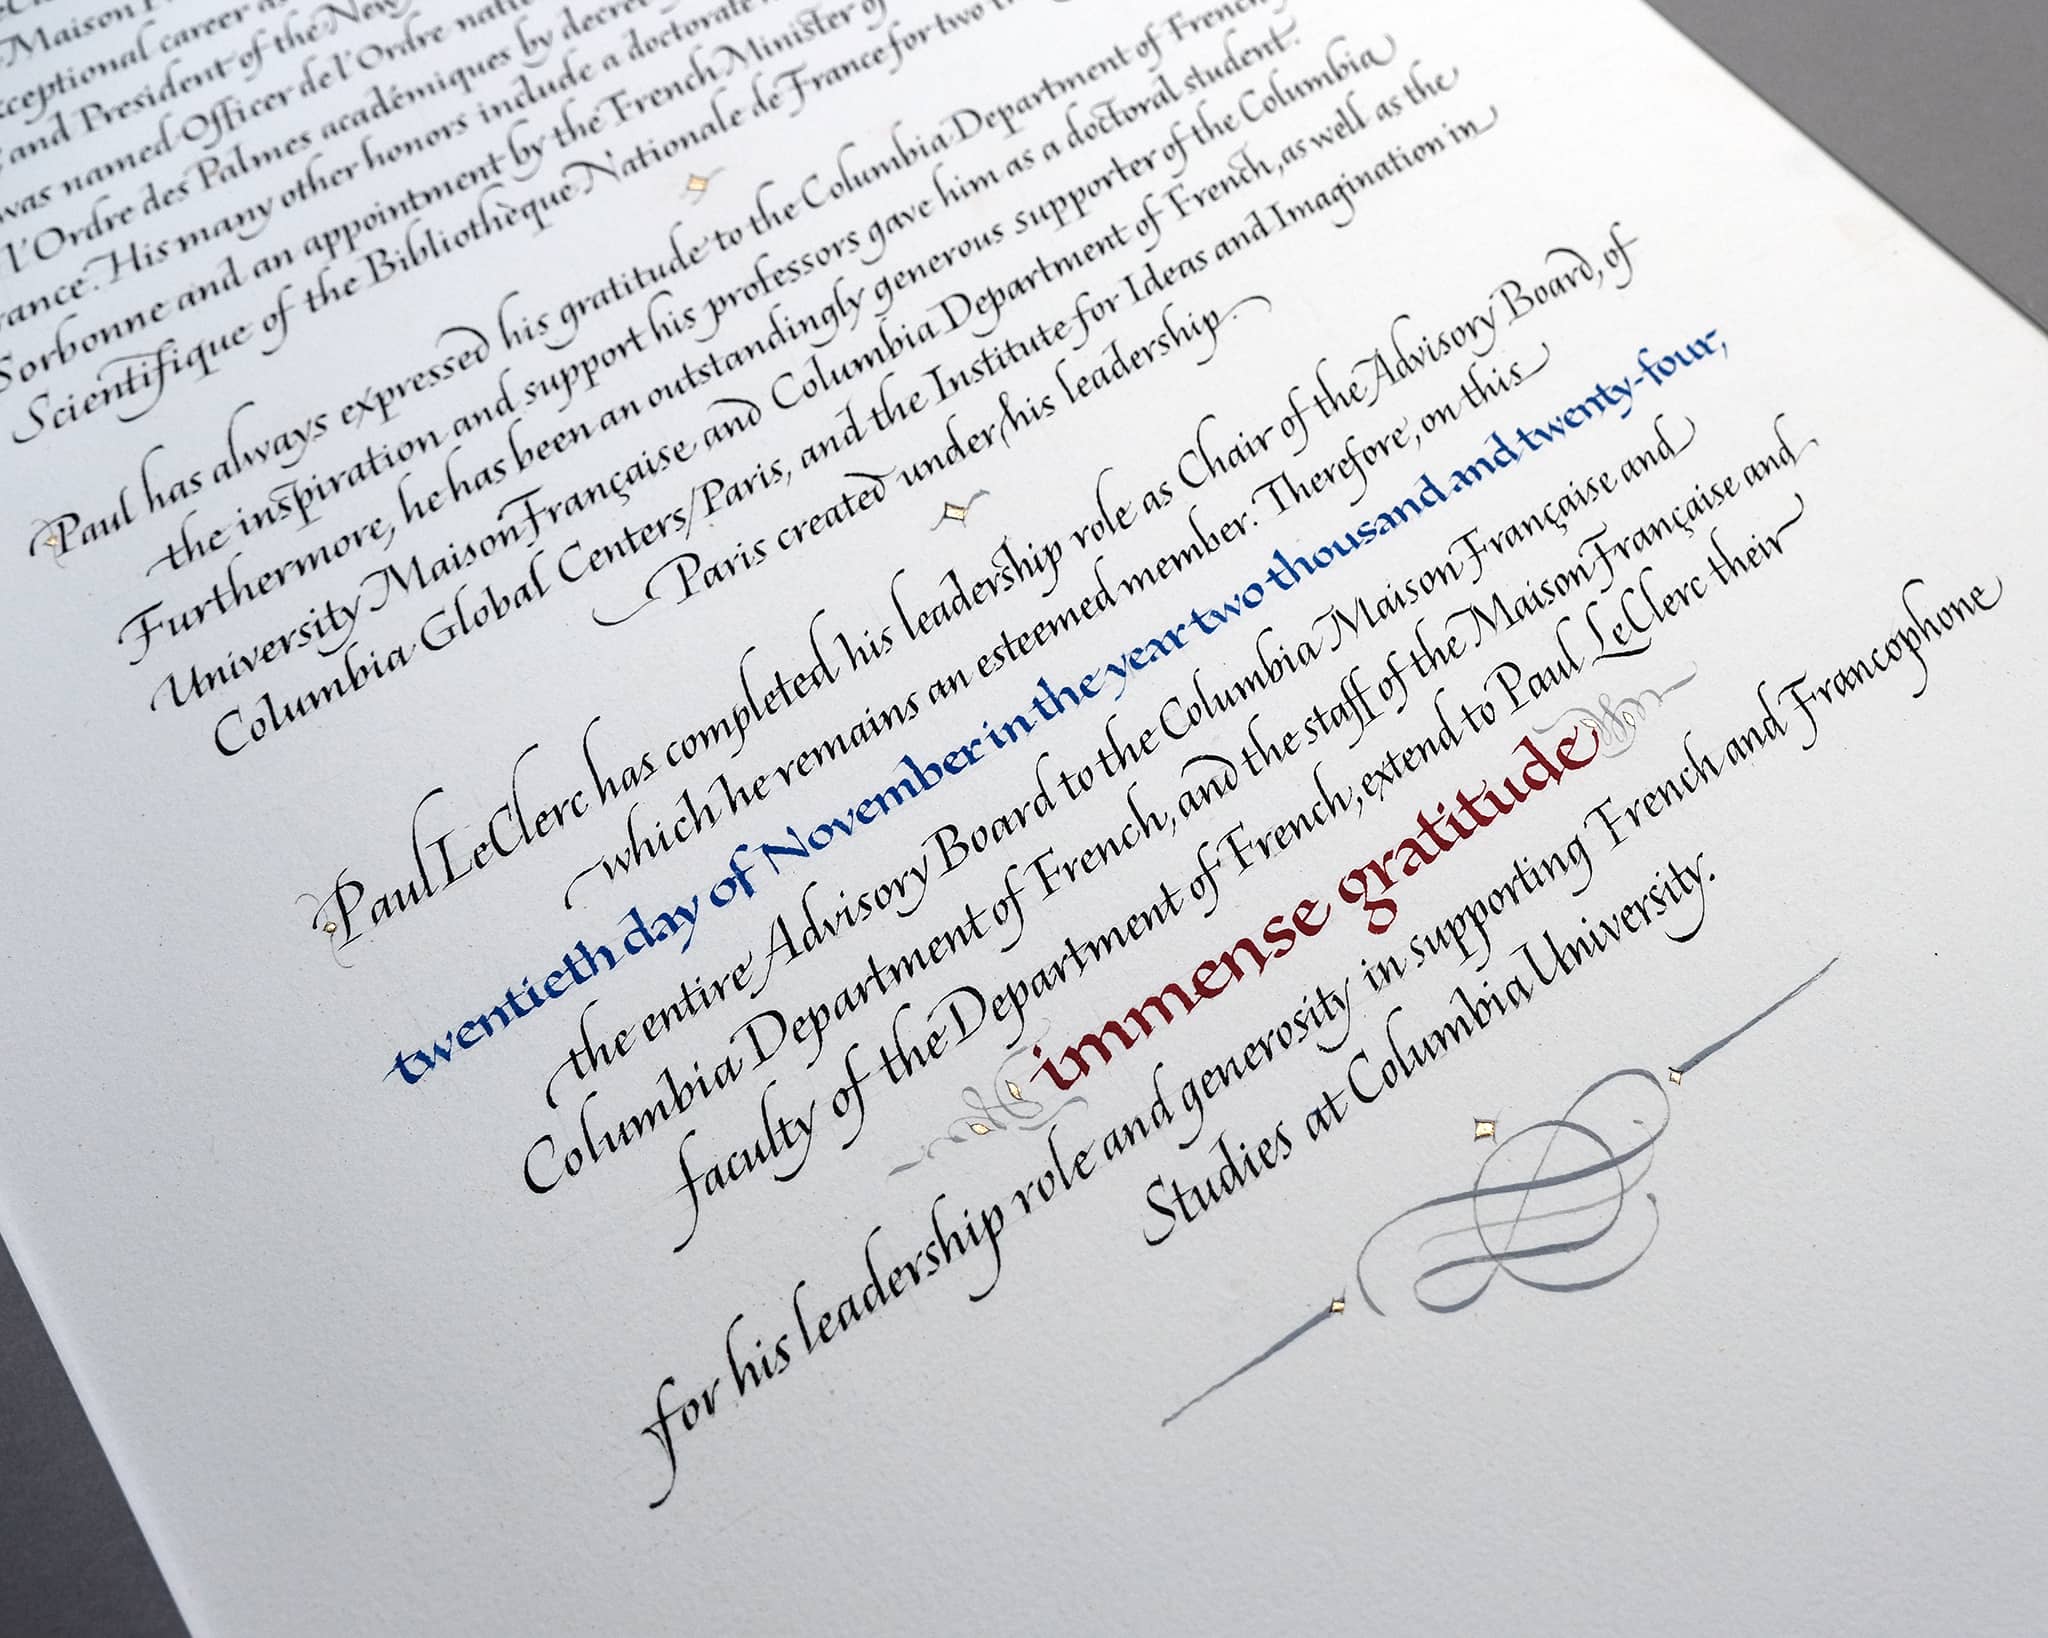 Maison
exceptional career as
and President of the New
was named Officer de l'Ordre natio
l'Ordre des Palmes académiques by decree
rance. His many other honors include a doctorate
Sorbonne and an appointment by the French Minister of
Scientifique of the Bibliothèque Nationale de France for two
Paul has always expressed his gratitude to the Columbia Department of French
the inspiration and support his professors gave him as a doctoral student.
Furthermore, he has been an outstandingly generous supporter of the Columbia
University Maison Française and Columbia Department of French, as well as the
Columbia Global Centers/Paris, and the Institute for Ideas and Imagination in
Paris created under his leadership.
Paul LeClerc has completed his leadership role as Chair of the Advisory Board, of
which he remains an esteemed member. Therefore, on this
twentieth day of November in the year two thousand and twenty-four,
the entire Advisory Board to the Columbia Maison Française and
Columbia Department of French, and the staff of the Maison Française and
faculty of the Department of French, extend to Paul LeClerc their
immense gratitude
for his leadership role and generosity in supporting French and Francophone
Studies at Columbia University.